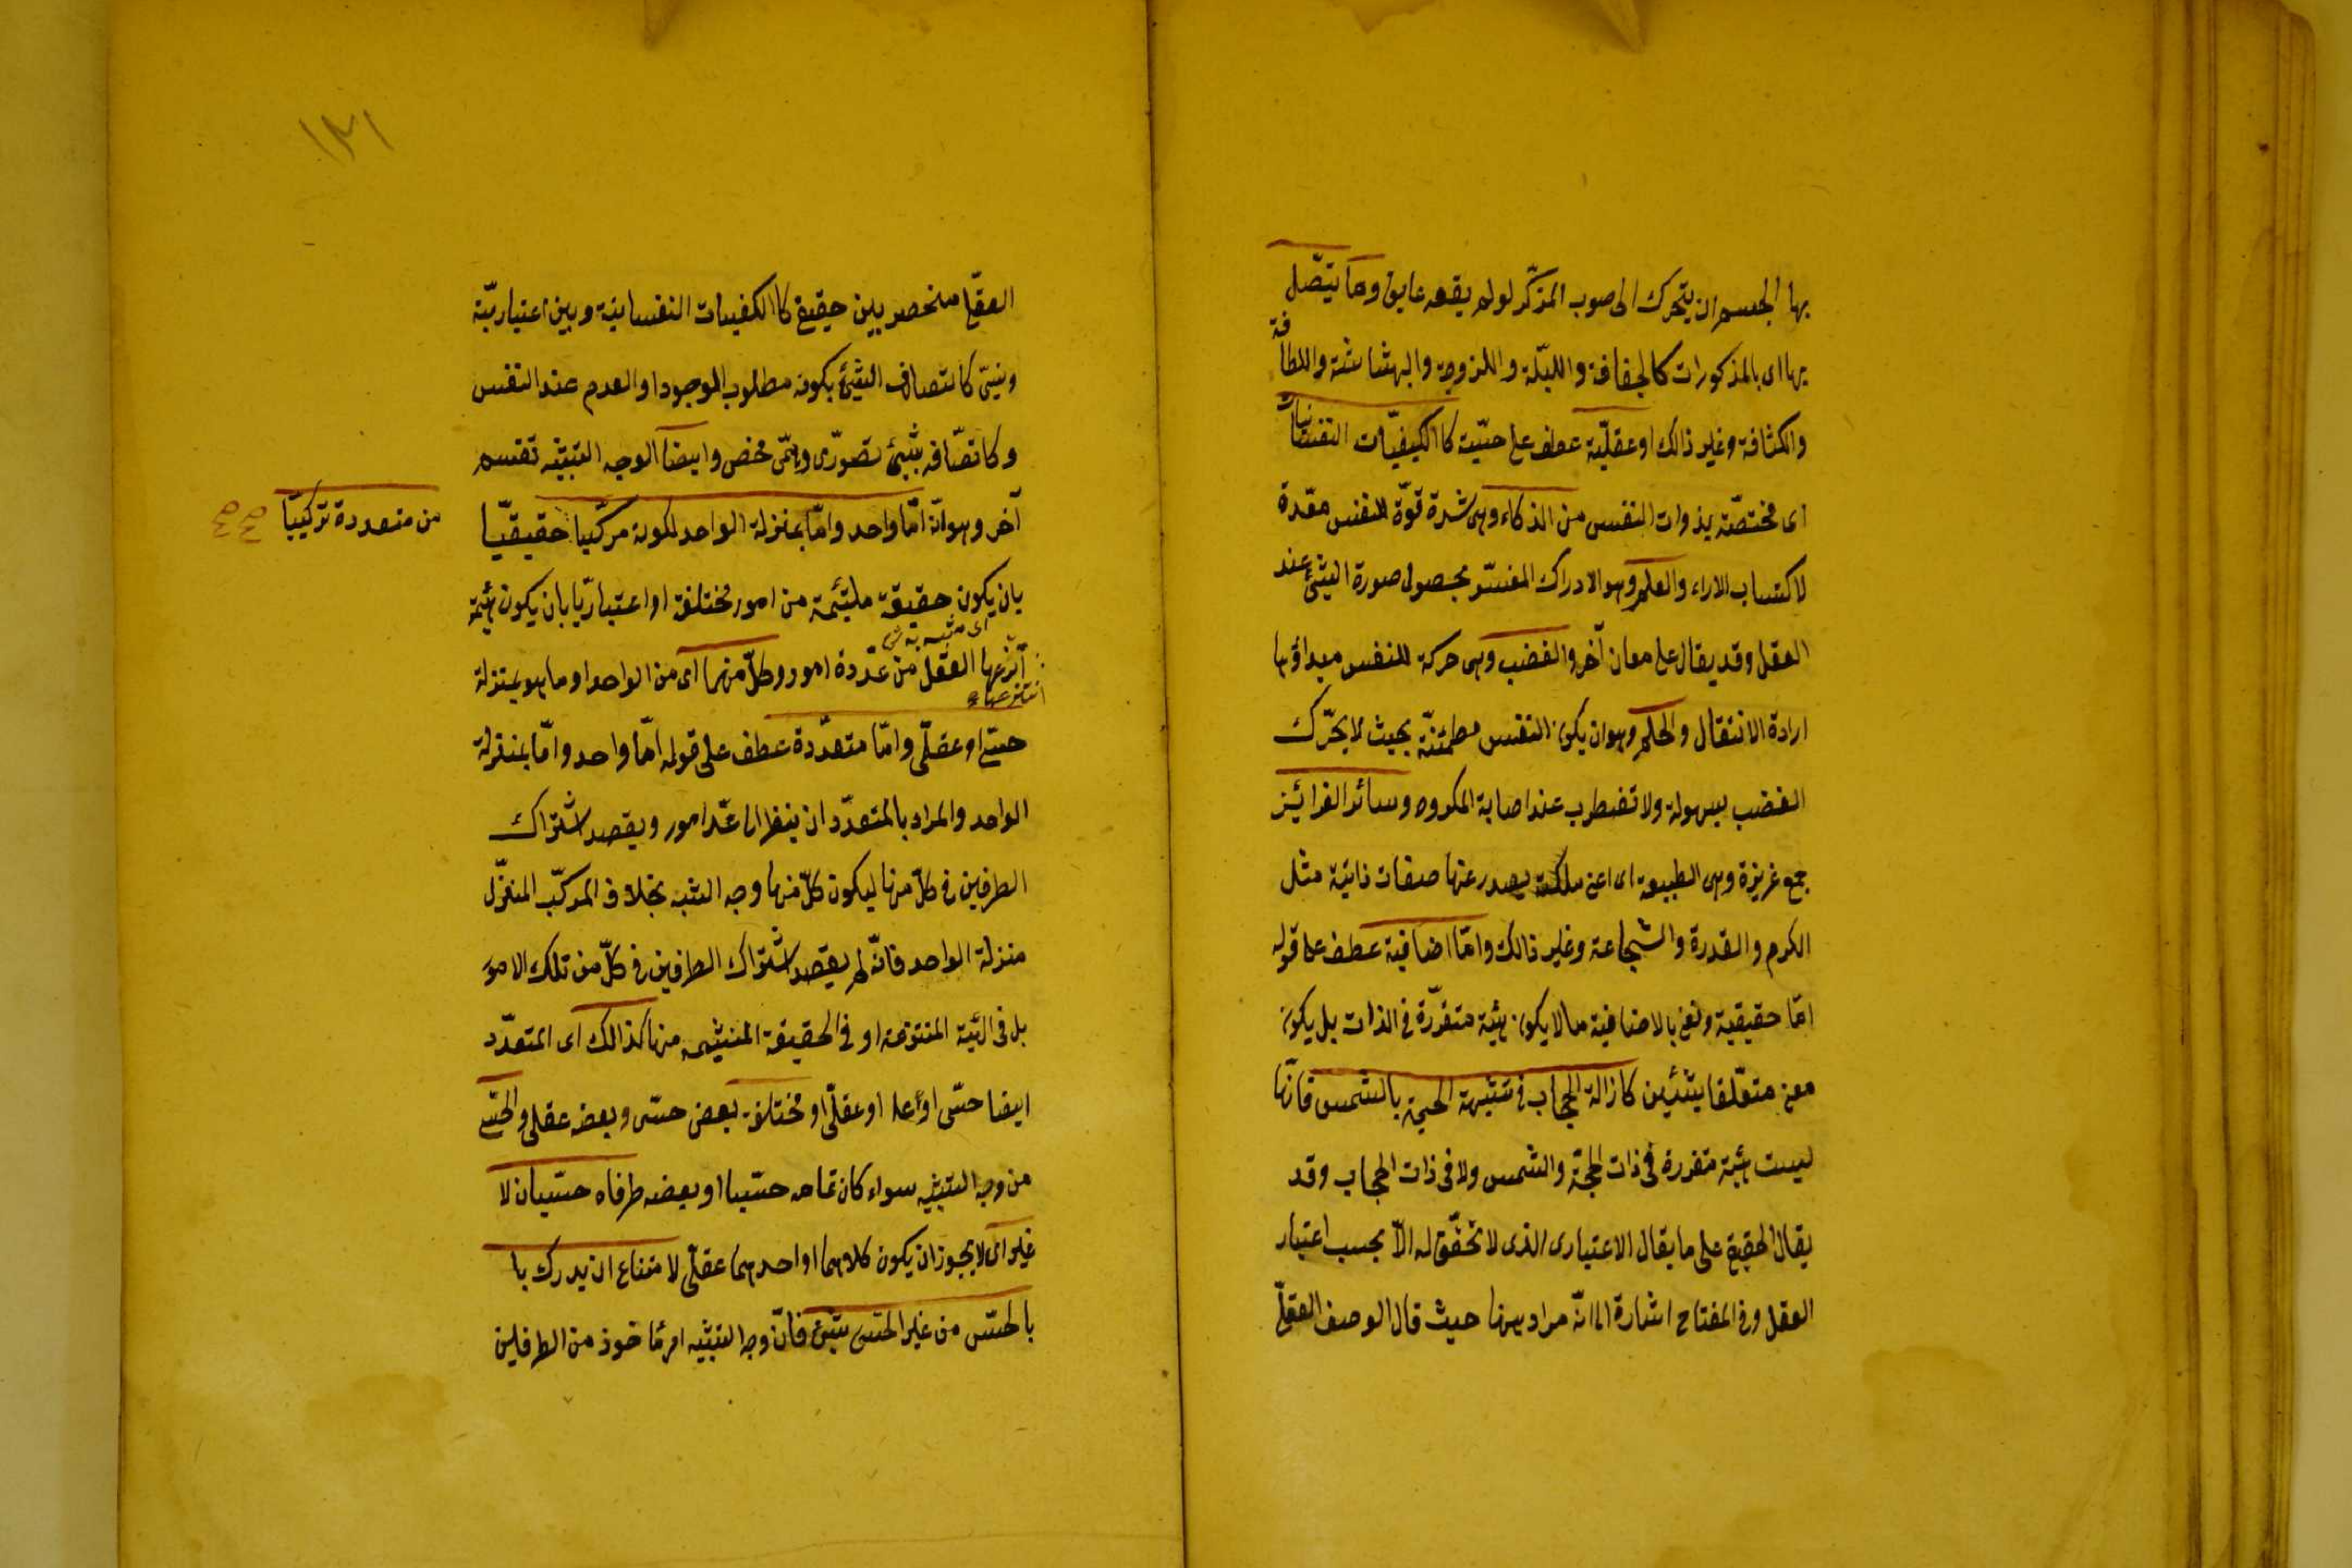 بها الجسم ان يتحرك الى صوب المركز لو لم يقعه عايق وما يتصل
بها اى بالمذكورات كالجفافة والبلّة واللزوجة والهشاشة واللطافة
والكثافة وغير ذالك او عقليّة عطف على حسّيّة كاالكيفيّات النفسانيّات
اى مختصّة بذوات النفس من الذكاء وهى شدة قوّة للنفس معّدة
لاكتساب الاراء والعلم وهو الادراك المفسّر بحصول صورة الشئ عند
العقل وقد يقال على معان آخر والغضب وهى حركة للنفس مبداؤها
ارادة الانتقال والحلم وهو ان يكون النفس مطمئنّة بحيث لا يحرّك
الغضب بسهولة ولا تضطرب عند اصابة المكروه وسائر الغرائيز
جمع غريزة وهى الطبيعة اى اعنى ملكة يصدر عنها صفات ذاتيّة مثل
الكرم والقدرة والشجاعة وغير ذالك وامّا اضافية عطف على قوله
امّا حقيقية ونعنى بالاضافية ما لا يكون هيئة متقرّرة فى الذات بل يكون
معنى متعّلقا بشئين كازالة الحجاب فى تشبيه الحجة بالشمس فانّها
ليست هيئة متقررة فى ذات الحجّة والشمس ولا فى ذات الحجاب وقد
يقال الحقيقى على ما يقال الاعتبارى الذى لا تحقّق له الاّ بحسب اعتبار
العقل وفى المفتاح اشارة الى انّه مراد ههنا حيث قال الوصف العقلىّ
١٣١
العقلى منحصر بين حقيقى كاالكفيات النفسانيّة وبين اعتباريّة
ونسبّى كاتصاف الشئ بكونه مطلوب الوجود او العدم عند النفس
وكاتصّافه بشئ تصورّى وهمّى محض وايضا الوجه التشبيه تقسم
آخر وهو انّه امّا واحد وامّا بمنزلة الواحد لكونه مركّبا حقيقيّا
من متعددة تركيبّا صح
بان يكون حقيقة ملتئمة من امور مختلفة او اعتباريّا بان يكون هئية
اى مشبه به
آنزعها العقل من عدّدة امور وكلّ منهما اى من الواحد او ما هو بمنزلة
انتزعها
حسّى او عقلّى وامّا متعدّدة عطف على قوله امّا واحد وامّا بمنزلة
الواحد والمراد بالمتعدّد ان ينظر الى عدّ امور ويقصد اشتراك
الطرفين فى كلّ منها ليكون كلّ منها وجه الشبه بخلاف المركّب المنزّل
منزلة الواحد فانّه لم يقصد اشتراك الطرفين فى كلّ من تلك الامور
بل فى الهئية المنتزعة او فى الحقيقة الملتئمه منها كذالك اى المتعدّد
ايضا حسّى او عقلّى او مختلفة بعض حسّى وبعضه عقلى والحسّى
من وجه التشبيه سواء كان تمامه حسّيا او بعضه طرفاه حسّيان لا
غير اى لا يجوز ان يكون كلاهما او احدهما عقلّى لامتناع ان يدرك با
بالحسّى من غير الحسّى شئ فانّ وجه التشبيه امر مّاخوذ من الطرفين